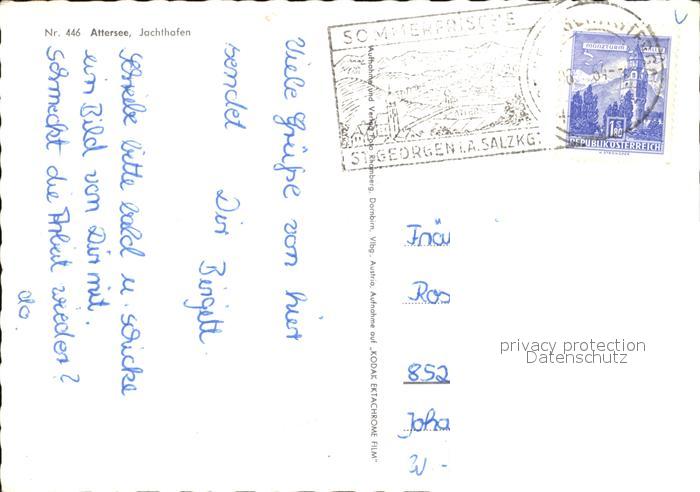 Nr. 446 Attersee, Jachthafen
Viele Grüße von hier
sendet
Dir Birgitt.
Schreibe bitte bald u. schicke
ein Bild von Dir mit.
Schmeckt die Arbeit wieder?
do.
SOMMERFRISCHE
ST. GEORGEN I.A. SALZKG.
MÜNZTURM
1.80
REPUBLIK ÖSTERREICH
Rhomberg, Dornbirn, Vlbg., Austria, Aufnahme auf „KODAK EKTACHROME FILM“
Fräu
Ros
852
Joha
privacy protection
Datenschutz